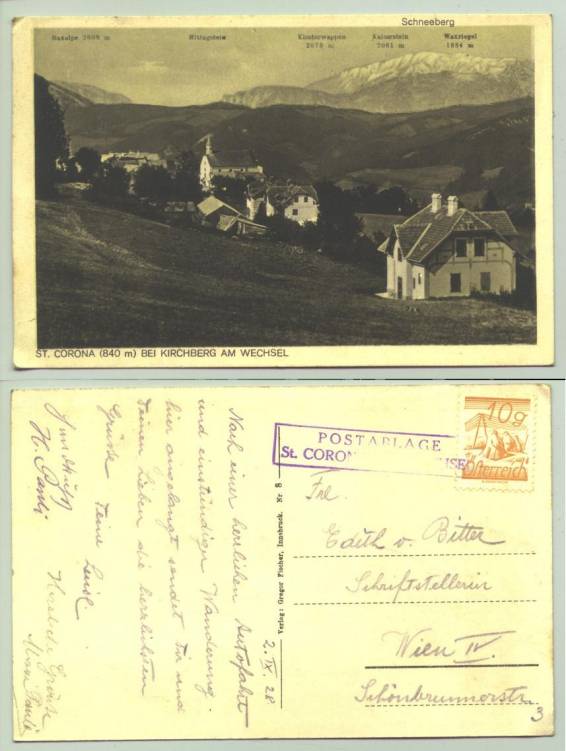 Schneeberg
Raxalpe 2009 m Mittagstein Klosterwappen Kaiserstein Waxriegel
2075 m 2061 m 1884 m
ST. CORONA (840 m) BEI KIRCHBERG AM WECHSEL
POSTABLAGE
St. CORON
10g
Österreich
Frl.
Edith v. Bitter
Schriftstellerin
Wien IV.
Schönbrunnerstr.
3
Verlag: Gregor Fischer, Innsbruck. Nr 8
2. IX. 28
Nach einer herrlichen Autofahrt
und einstündiger Wanderung
hier angelangt sendet Dir und
Deinen Lieben die herzlichsten
Grüsse Deine Luise
Handkuss
H. Pauli
Herzliche Grüsse
Pauli